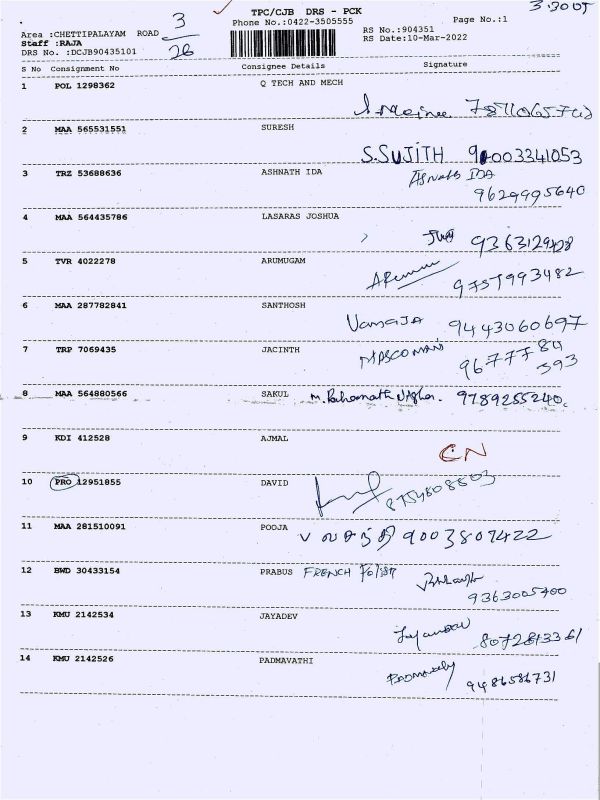 TPC/CJB DRS - PCK
3.30
3
Page No.:1
Phone No.:0422-3505555
Area :CHETTIPALAYAM ROAD
RS No.:904351
Staff :RAJA
RS Date:10-Mar-2022
DRS No. :DCJB90435101
26
S No Consignment No Consignee Details Signature
1 POL 1298362 Q TECH AND MECH
2 MAA 565531551 SURESH
S.SUJITH 90003341053
3 TRZ 53688636 ASHNATH IDA Ashnath IDA
9629995640
4 MAA 564435786 LASARAS JOSHUA
9363129428
5 TVR 4022278 ARUMUGAM
9751993482
6 MAA 287782841 SANTHOSH
VanaJA 9443060697
7 TRP 7069435 JACINTH MASCOMANI
96777 84
393
8 MAA 564880566 SAKUL 9789255240.
9 KDI 412528 AJMAL
CN
10 PRO 12951855 DAVID
11 MAA 281510091 POOJA
வசந்தி 9003807422
12 BWD 30433154 PRABUS FRENCH Polish
9363005400
13 KMU 2142534 JAYADEV
Jayadev 8072813361
14 KMU 2142526 PADMAVATHI
9486586731